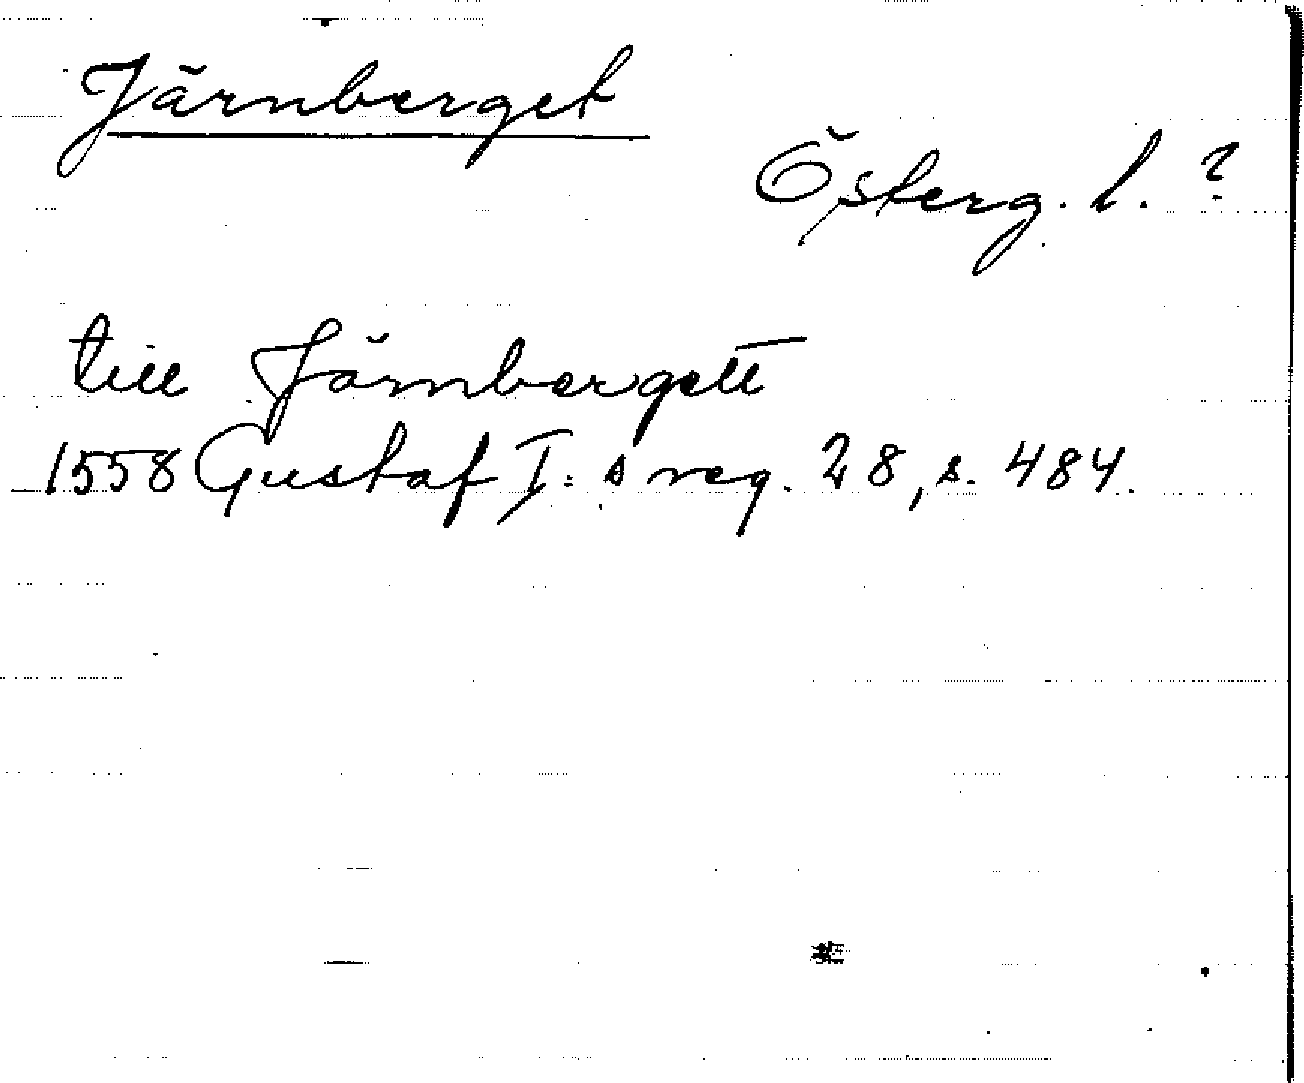 Järnberget
Österg. l. ?
till Järnbergett
1558 Gustaf I:s reg. 28, s. 484.